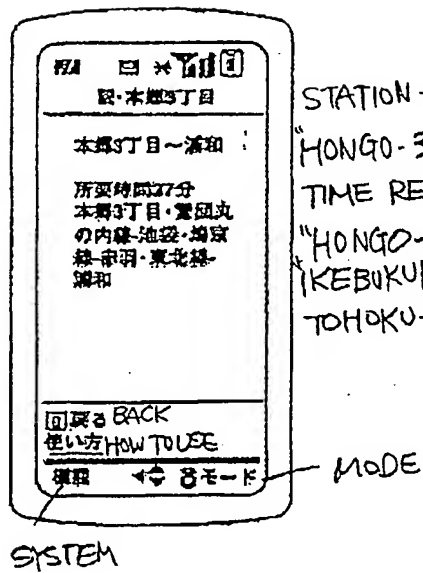 駅・本郷3丁目
本郷3丁目～浦和
所要時間37分
本郷3丁目・営団丸
の内線-池袋・埼京
線-赤羽・東北線-
浦和
回戻る BACK
使い方 HOW TO USE
モード
STATION-
"HONGO-3
TIME RE
"HONGO-
"IKEBUKU
TOHOKU-
MODE
SYSTEM